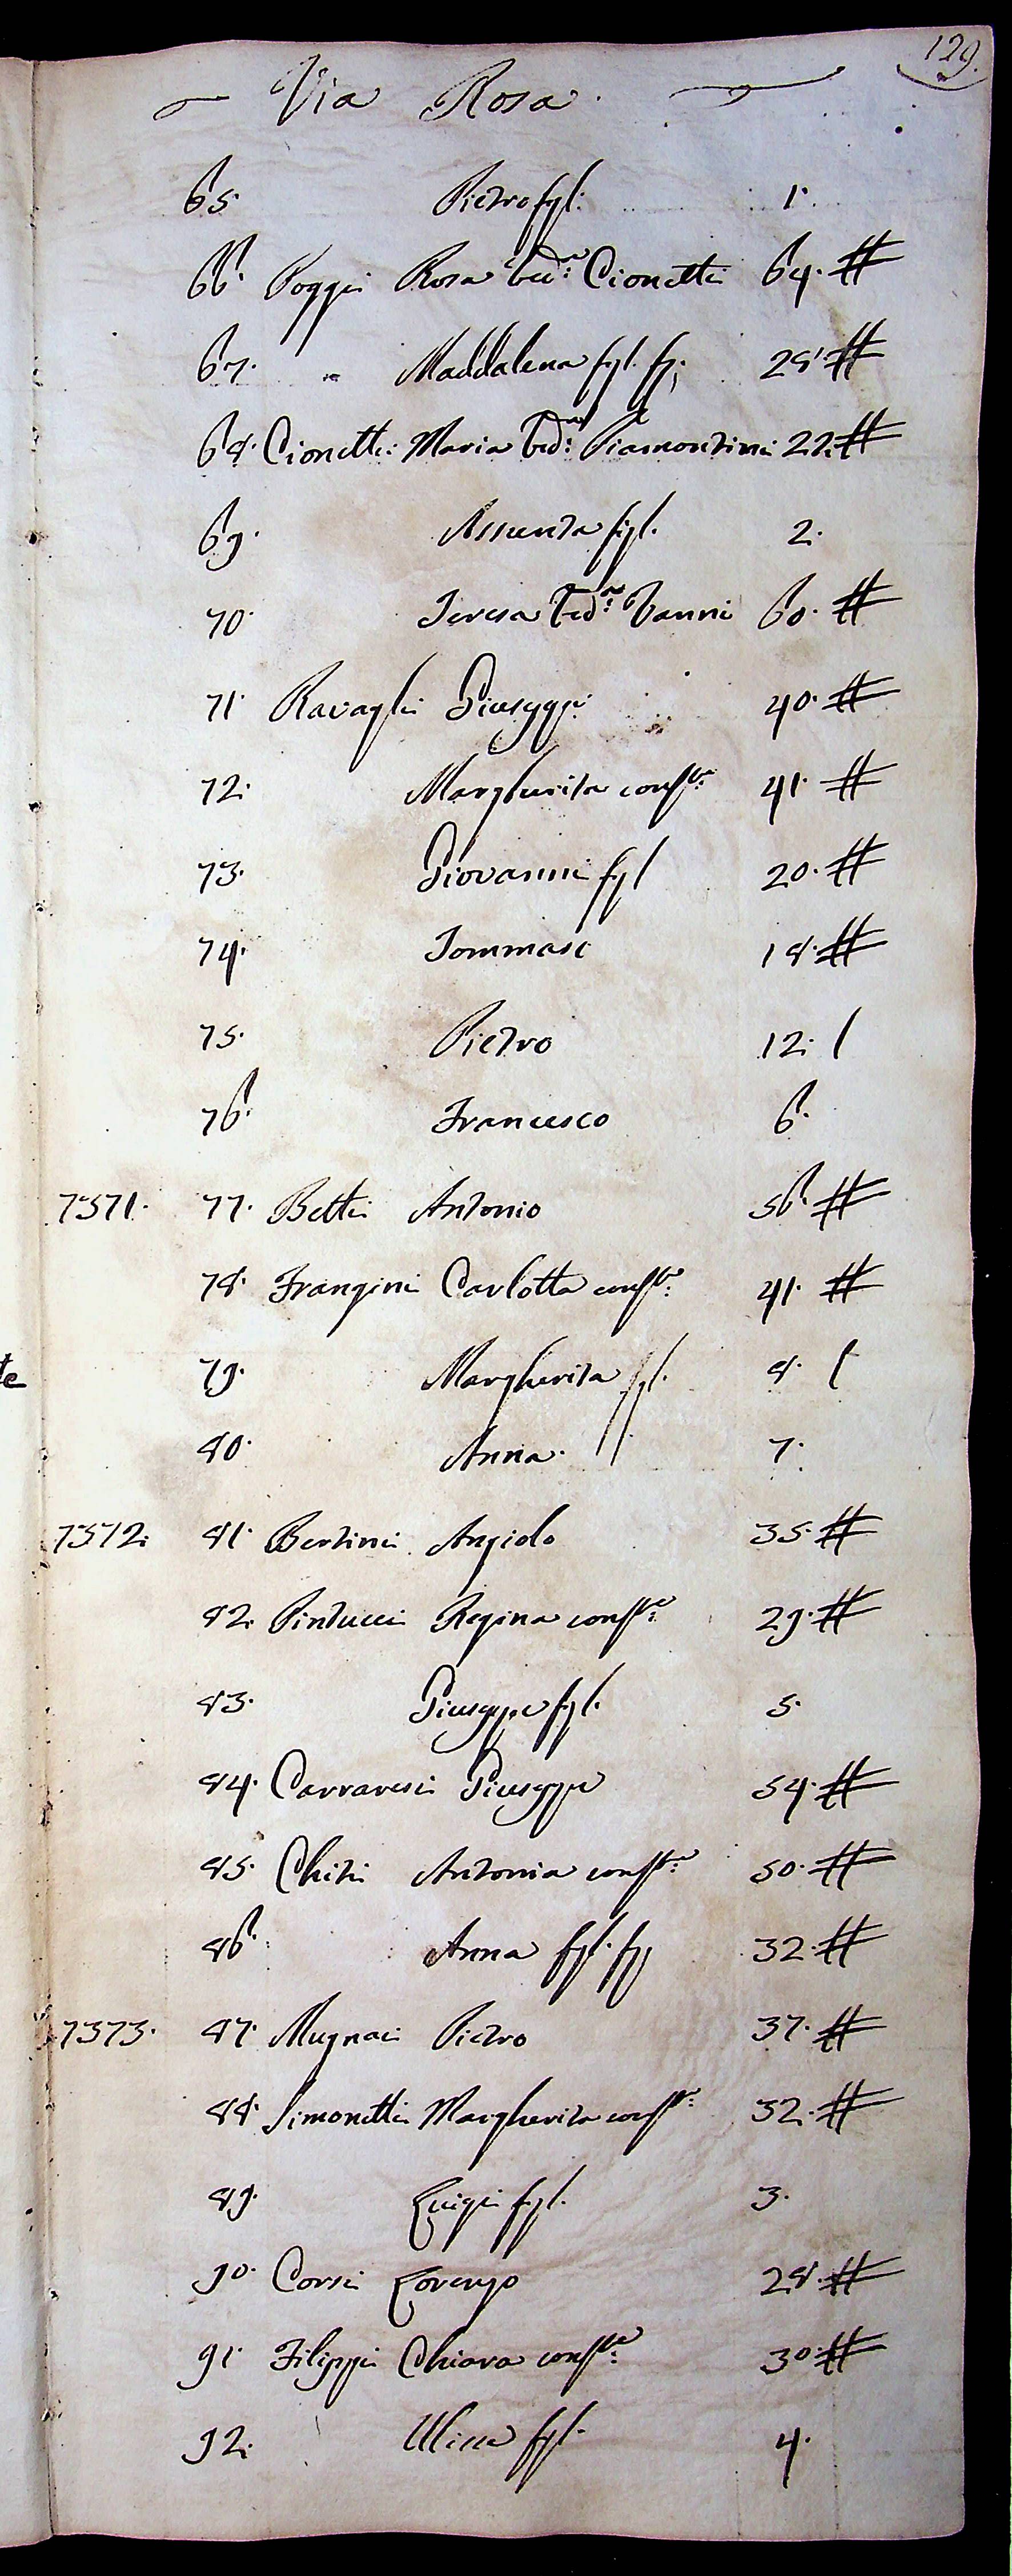 129.
Via Rosa.
65. Pietro figl: 1.
66. Poggi Rosa Ved:ª Cionetti 64. #
67. " Maddalena figl. 28. #
68. Cionetti Maria Ved:ª Piamontini 22. #
69. Assunta figl. 2.
70. Teresa Ved:ª Vanni 60. #
71. Ravagli Giuseppe 40. #
72. Margherita cons:te 41. #
73. Giovanni figl 20. #
74. Tommaso 18. #
75. Pietro 12. /
76. Francesco 6.
7371. 77. Betti Antonio 56. #
78. Frangini Carlotta cons:te 41. #
te
79. Margherita figl. 8. /
80. Anna. 7.
7372. 81. Bertini Angiolo 35. #
82. Pinducci Regina cons:te 29. #
83. Giuseppe figl. 5.
84. Carraresi Giuseppe 54. #
85. Chiti Antonia cons:te 50. #
86. Anna figl. 32. #
7373. 87. Mugnai Pietro 37. #
88. Simonetti Margherita cons:te 32. #
89. Luigi figl. 3.
90. Corsi Lorenzo 28. #
91. Filippi Chiara cons:te 30. #
92. Ulisse figl. 4.